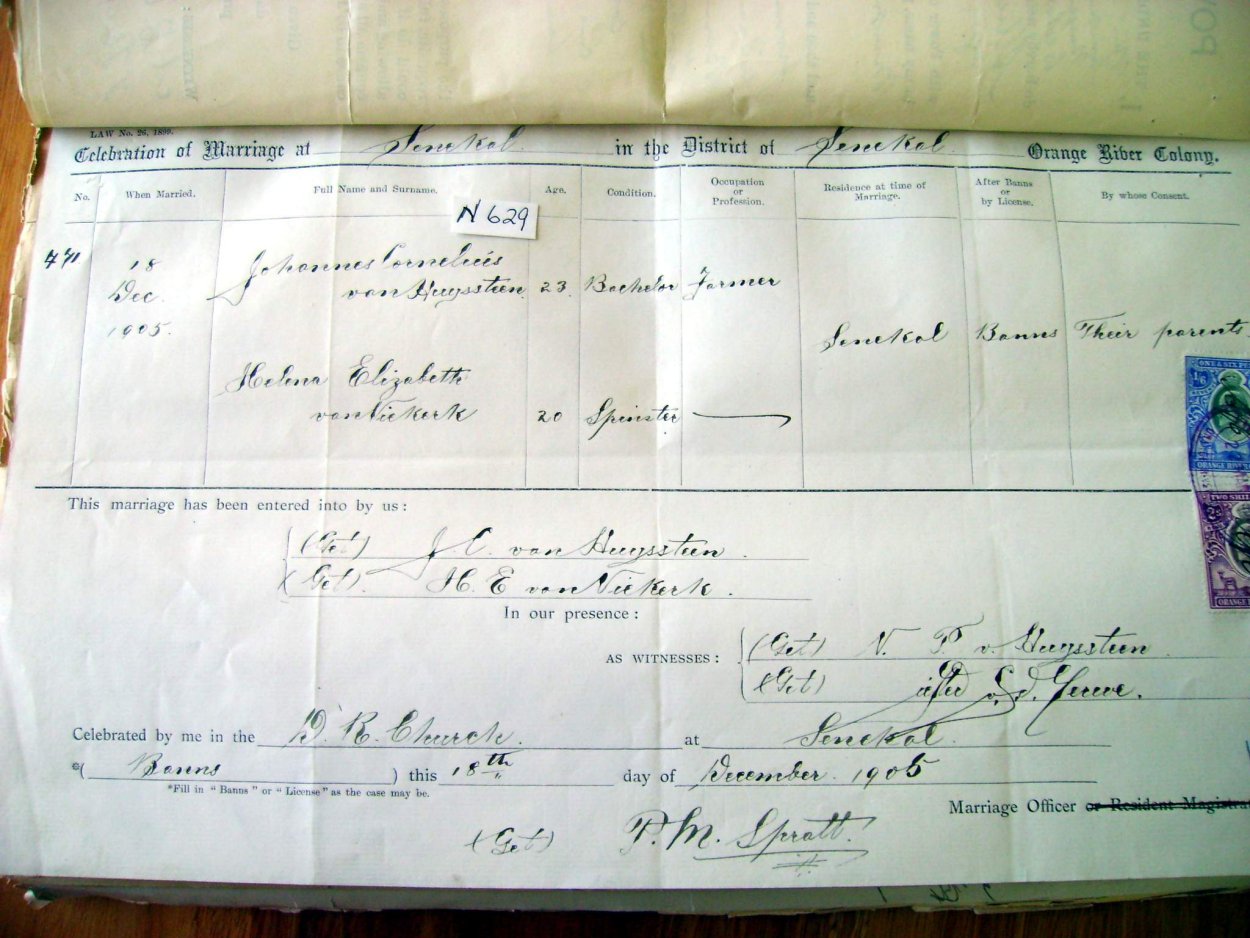 LAW No. 26, 1899.
Celebration of Marriage at Senekal in the District of Senekal Orange River Colony.
No. When Married. Full Name and Surname. Age. Condition. Occupation or Profession. Residence at time of Marriage. After Banns or by License. By whose Consent.
N629
18 Johannes Cornelius
Dec. van Huyssteen 23 Bachelor Farmer
1905. Senekal Banns Their parents
Helena Elizabeth
van Niekerk 20 Spinster
This marriage has been entered into by us:
(Get) J. C. van Huyssteen.
(Get). H. E van Niekerk.
In our presence:
AS WITNESSES: (Get) N. P. v. Huyssteen
(Get)
Celebrated by me in the D. R. Church. at Senekal.
*( Banns ) this 18th day of December. 1905
*Fill in "Banns" or "License" as the case may be.
Marriage Officer or Resident Magistrat
(Get) P. M. Spratt.
ONE & SIX PE
1/6
ORANGE RIVE
TWO SHIL
2s
ORANGE